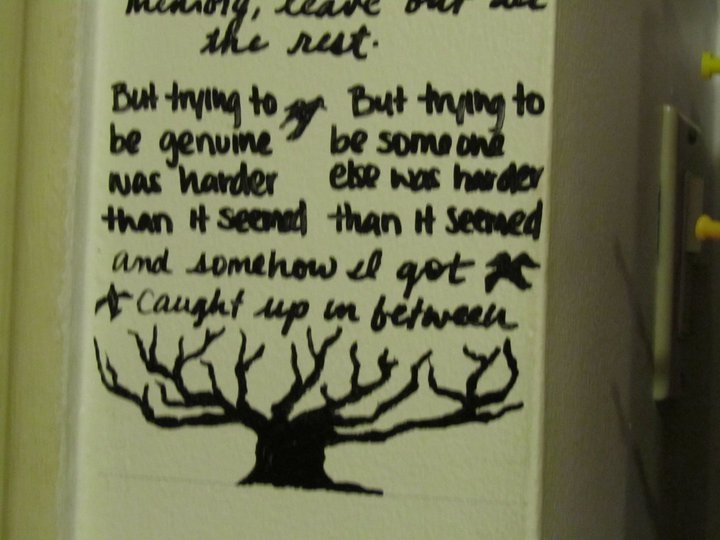 memory, leave out all
the rest.
But trying to
be genuine
was harder
than it seemed
But trying to
be someone
else was harder
than it seemed
and somehow I got
caught up in between